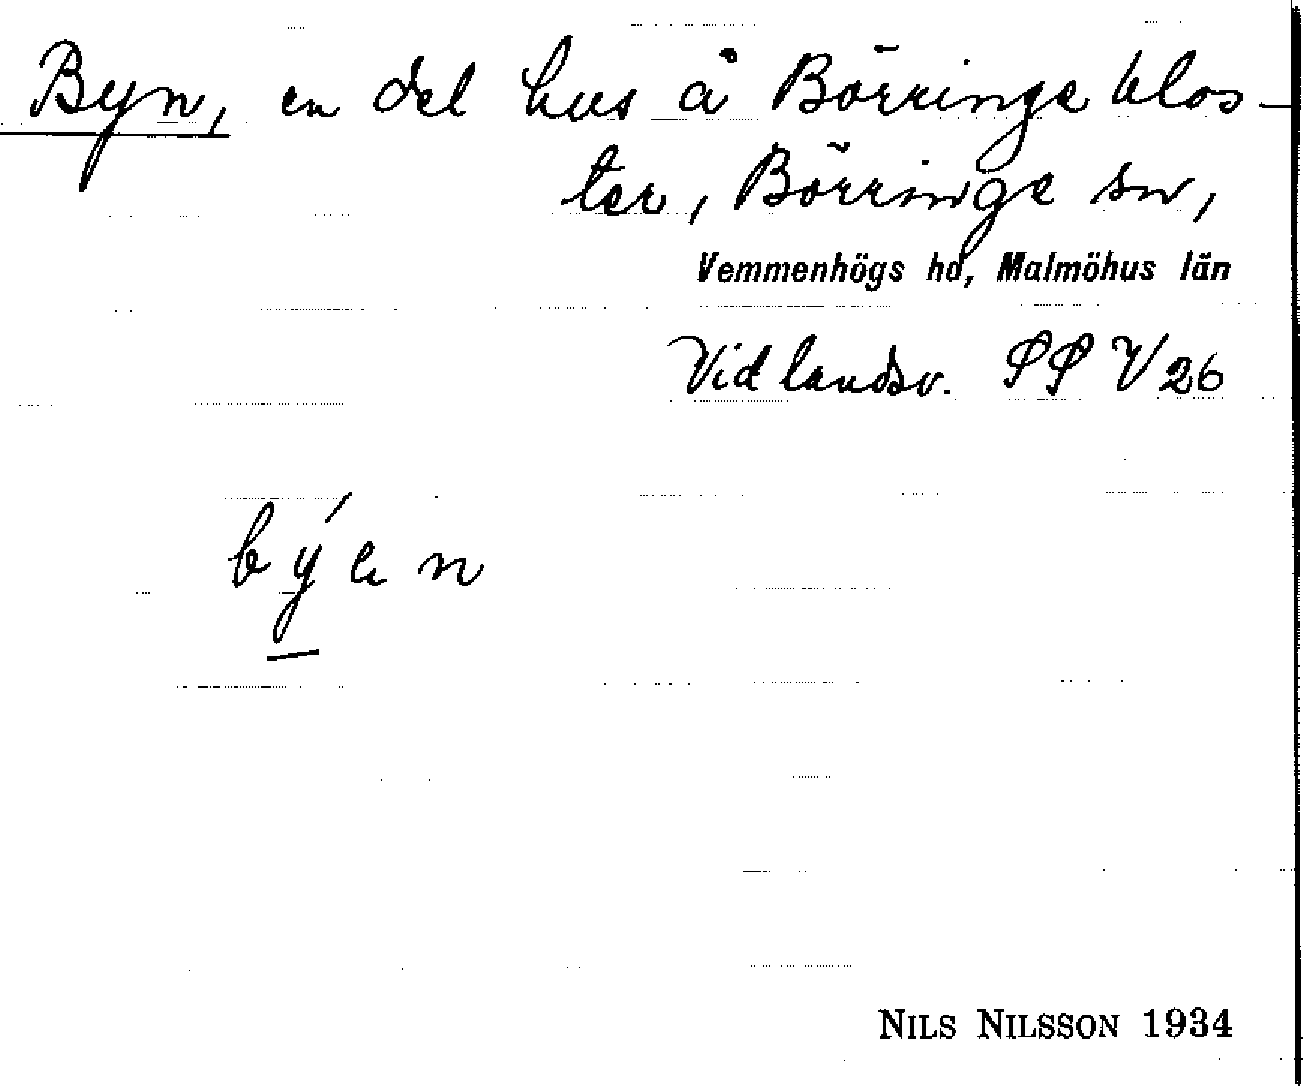 Byn, en del hus å Börringe klos-
ter, Börringe sn,
Vemmenhögs hd, Malmöhus län
Vid landsv. SS V/26
býen
NILS NILSSON 1934